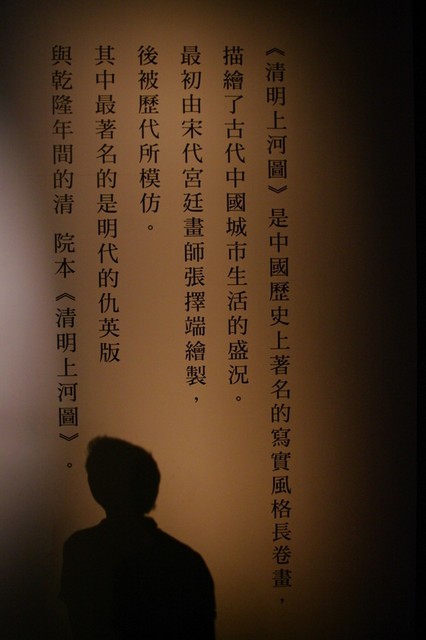 《清明上河圖》是中國歷史上著名的寫實風格長卷畫，
描繪了古代中國城市生活的盛況。
最初由宋代宮廷畫師張擇端繪製，
後被歷代所模仿。
其中最著名的是明代的仇英版
與乾隆年間的清 院本《清明上河圖》。